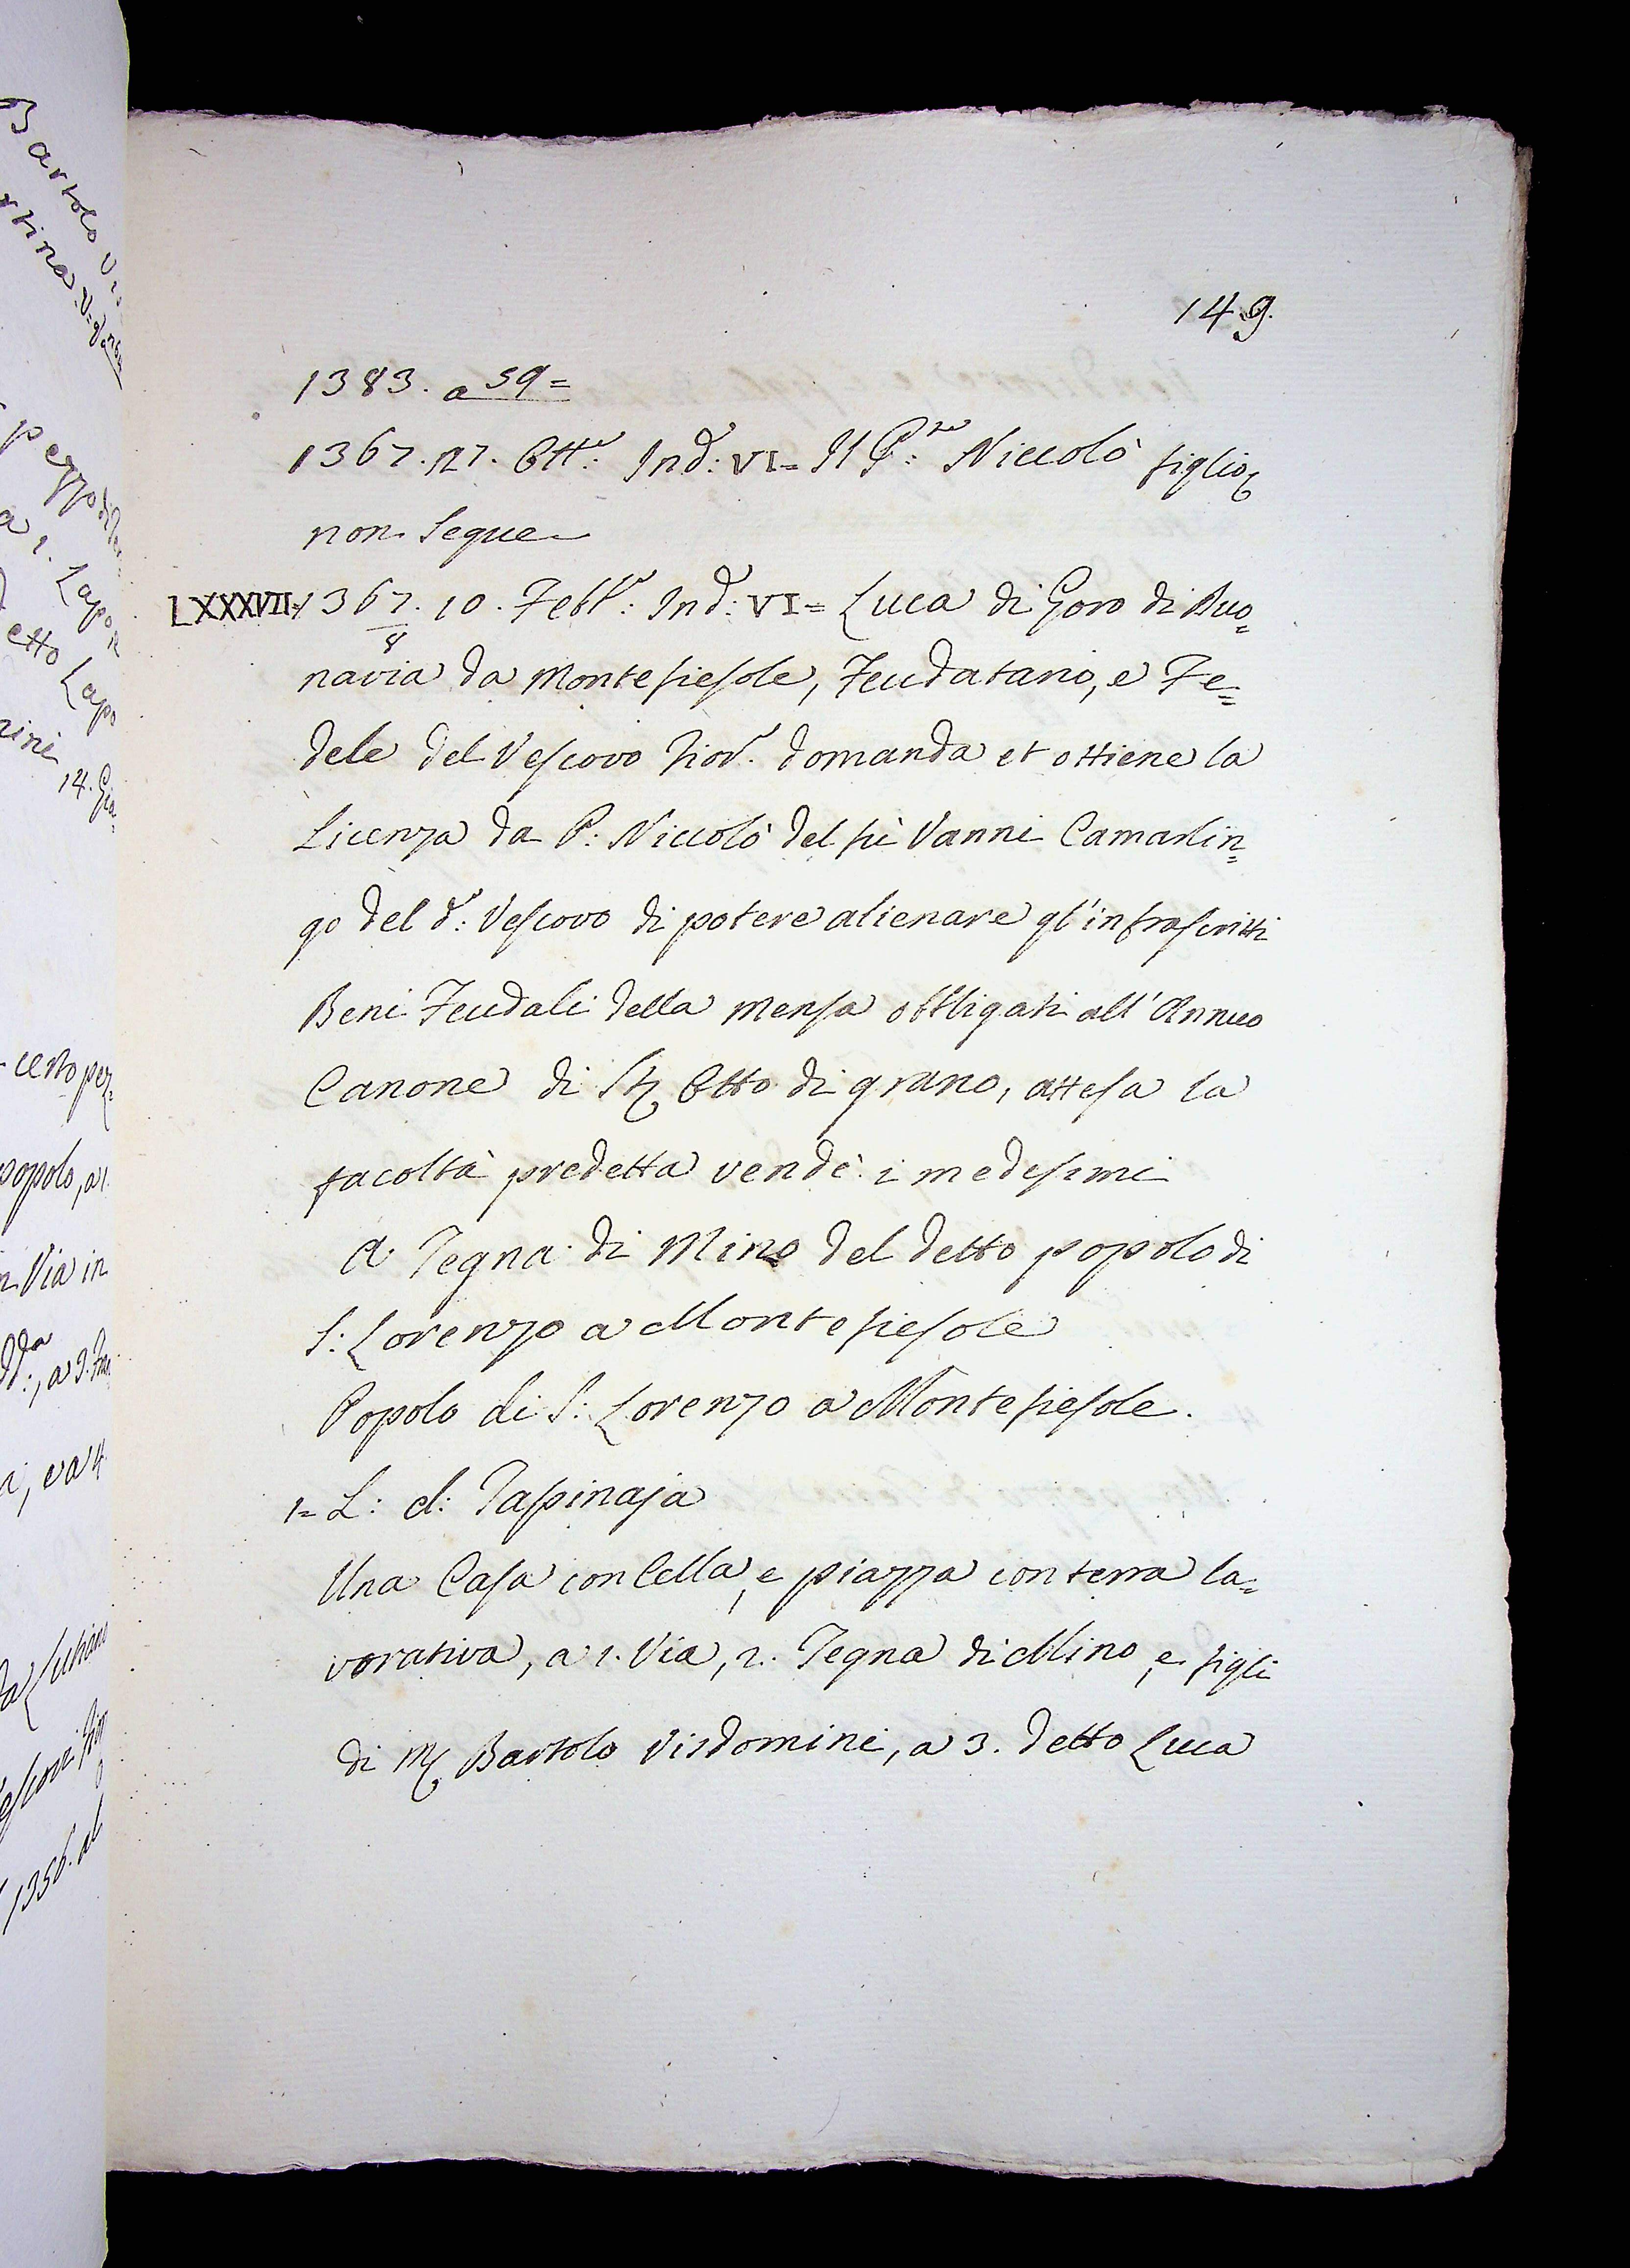 149.
1383. a 59=
1367. 27. Ott.e: Ind.: VI= Il P.re: Niccolò figlio
non segue
LXXXVII=1367/8. 10. Febb.o: Ind.: VI= Luca di Goro di Buo=
navia da Montefiesole, Feudatario, e Fe=
dele del Vescovo Fior.o domanda et ottiene la
Licenza da P: Niccolò del fù Vanni Camarlin=
go del d.o: Vescovo di potere alienare gl'infrascritti
Beni Feudali della Mensa obbligati all'Annuo
Canone di St. Otto di grano, attesa la
facoltà predetta vendè i medesimi
A Tegna di Mino del detto popolo di
S: Lorenzo a Montefiesole
Popolo di S: Lorenzo a Montefiesole.
1= L: d: Taspinaja
Una Casa con Cella, e piazza con terra la=
vorativa, a 1. Via, 2. Tegna di Mino, e figli
di M. Bartolo Visdomini, a 3. detto Luca